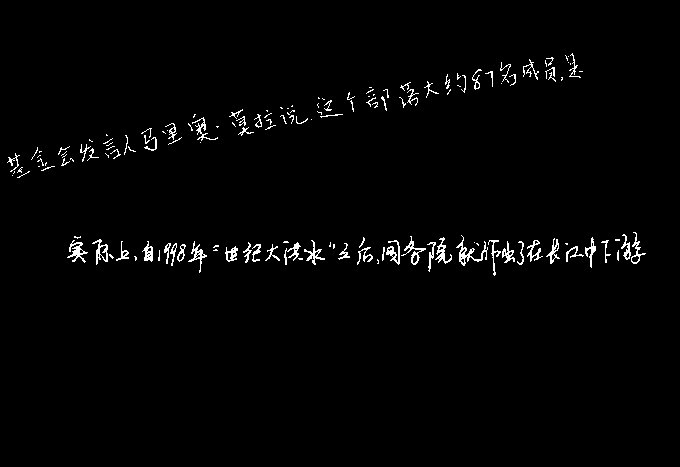 基金会发言人马里奥·莫拉说,这个部落大约87名成员,是
实际上,自1998年“世纪大洪水”之后,国务院就作出了在长江中下游